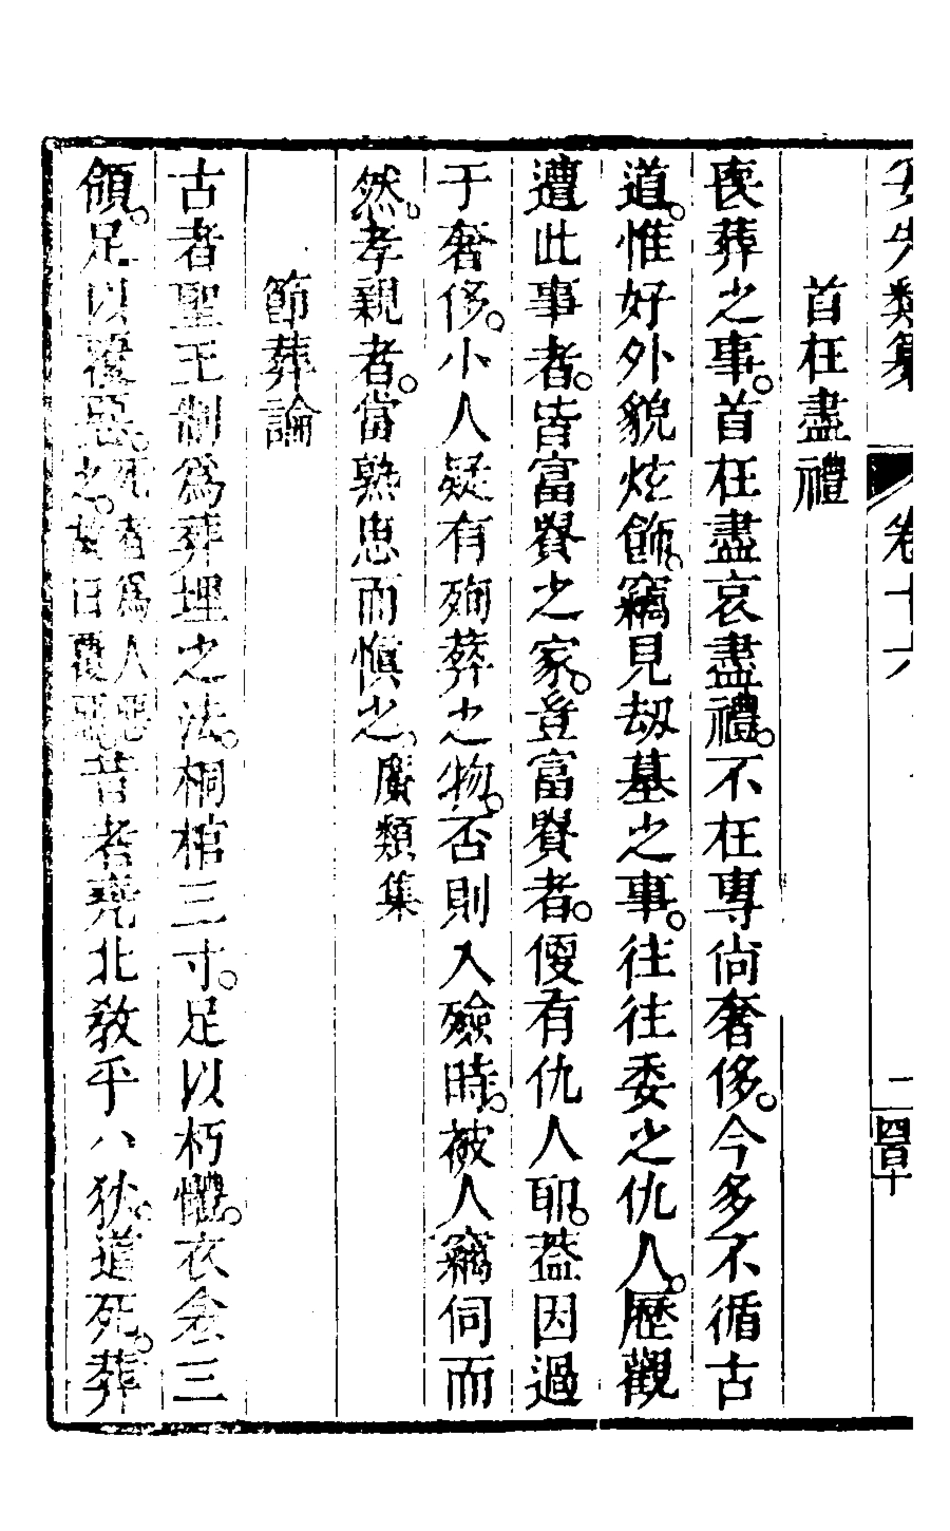 類纂 卷十六 二 四百十
首在盡禮
喪葬之事。首在盡哀盡禮。不在專尚奢侈。今多不循古
道。惟好外貌炫飾。竊見劫墓之事。往往委之仇人。歷觀
遭此事者。皆富貴之家。豈富貴者。便有仇人耶。蓋因過
于奢侈。小人疑有殉葬之物。否則入殮時。被人竊伺而
然。孝親者。當熟思而愼之。廣類集
節葬論
古者聖王制爲葬埋之法。桐棺三寸。足以朽體。衣衾三
領。足以覆惡。死者爲人惡之。故曰覆惡。昔者堯北敎乎八狄。道死。葬